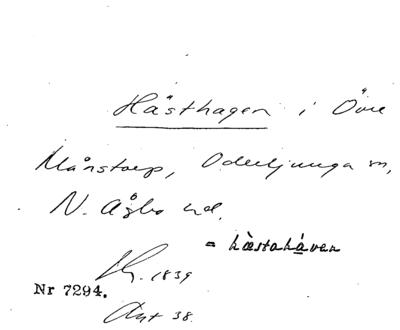 Hästhagen i Övre
Månstorp, Oderljunga sn,
N. Åsbo hd.
= hæstahaven
1839
Nr 7294.
38.